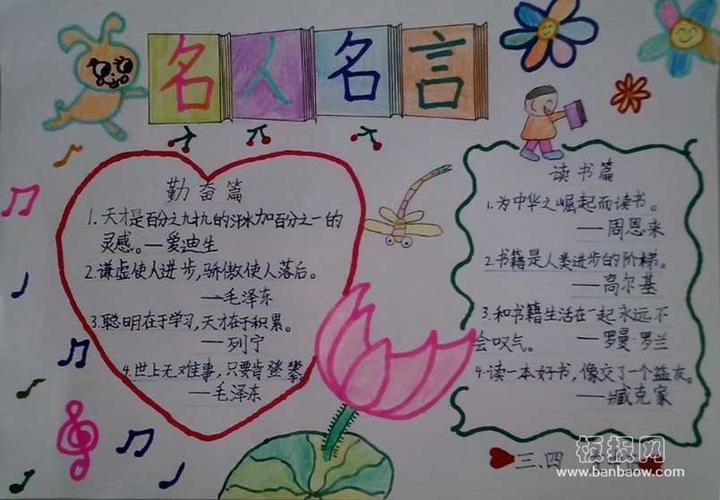 名人名言
勤奋篇
1.天才是百分之九十九的汗水加百分之一的
灵感。—爱迪生
2.谦虚使人进步,骄傲使人落后。
—毛泽东
3.聪明在于学习,天才在于积累。
—列宁
4.世上无难事,只要肯登攀。
—毛泽东
读书篇
1.为中华之崛起而读书。
—周恩来
2.书籍是人类进步的阶梯。
—高尔基
3.和书籍生活在一起永远不
会叹气。—罗曼·罗兰
4.读一本好书,像交了一个益友。
—臧克家
三.四
板报网
www.banbaow.com